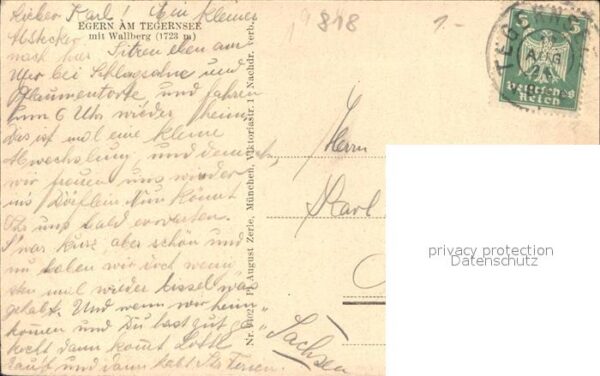 Lieber Karl! Ein kleiner
Abstecker
EGERN AM TEGERNSEE
mit Wallberg (1723 m)
nach hier Sitzen eben am
Ufer bei Schlagsahne und
Pflaumentorte und fahren
um 6 Uhr wieder heim
das ist mal eine kleine
Abwechslung und dennoch
wir freuen uns wieder
ins Dörflein. Nun könnt
Ihr uns bald erwarten.
S'war kurz aber schön und
nu haben wir doch wenig
sten mal wieder bissel was
gehabt. Und wenn wir heim
kommen und Du hast gut ge
dann kommt Lottl
rauf und dann habt Ihr Ferien.
Nr. 9402 F. August Zerle, München, Viktoriastr. 1 Nachdr. verb.
818
1.-
5 5
Deutsches
Reich
TEGERNSEE
AUG
Herrn
Karl
Sachsen
privacy protection
Datenschutz